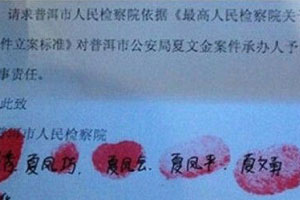 请求普洱市人民检察院依据《最高人民检察院关
件立案标准》对普洱市公安局夏文金案件承办人予
事责任。
此致
洱市人民检察院
夏凤仿 夏凤云 夏凤平 夏文勇